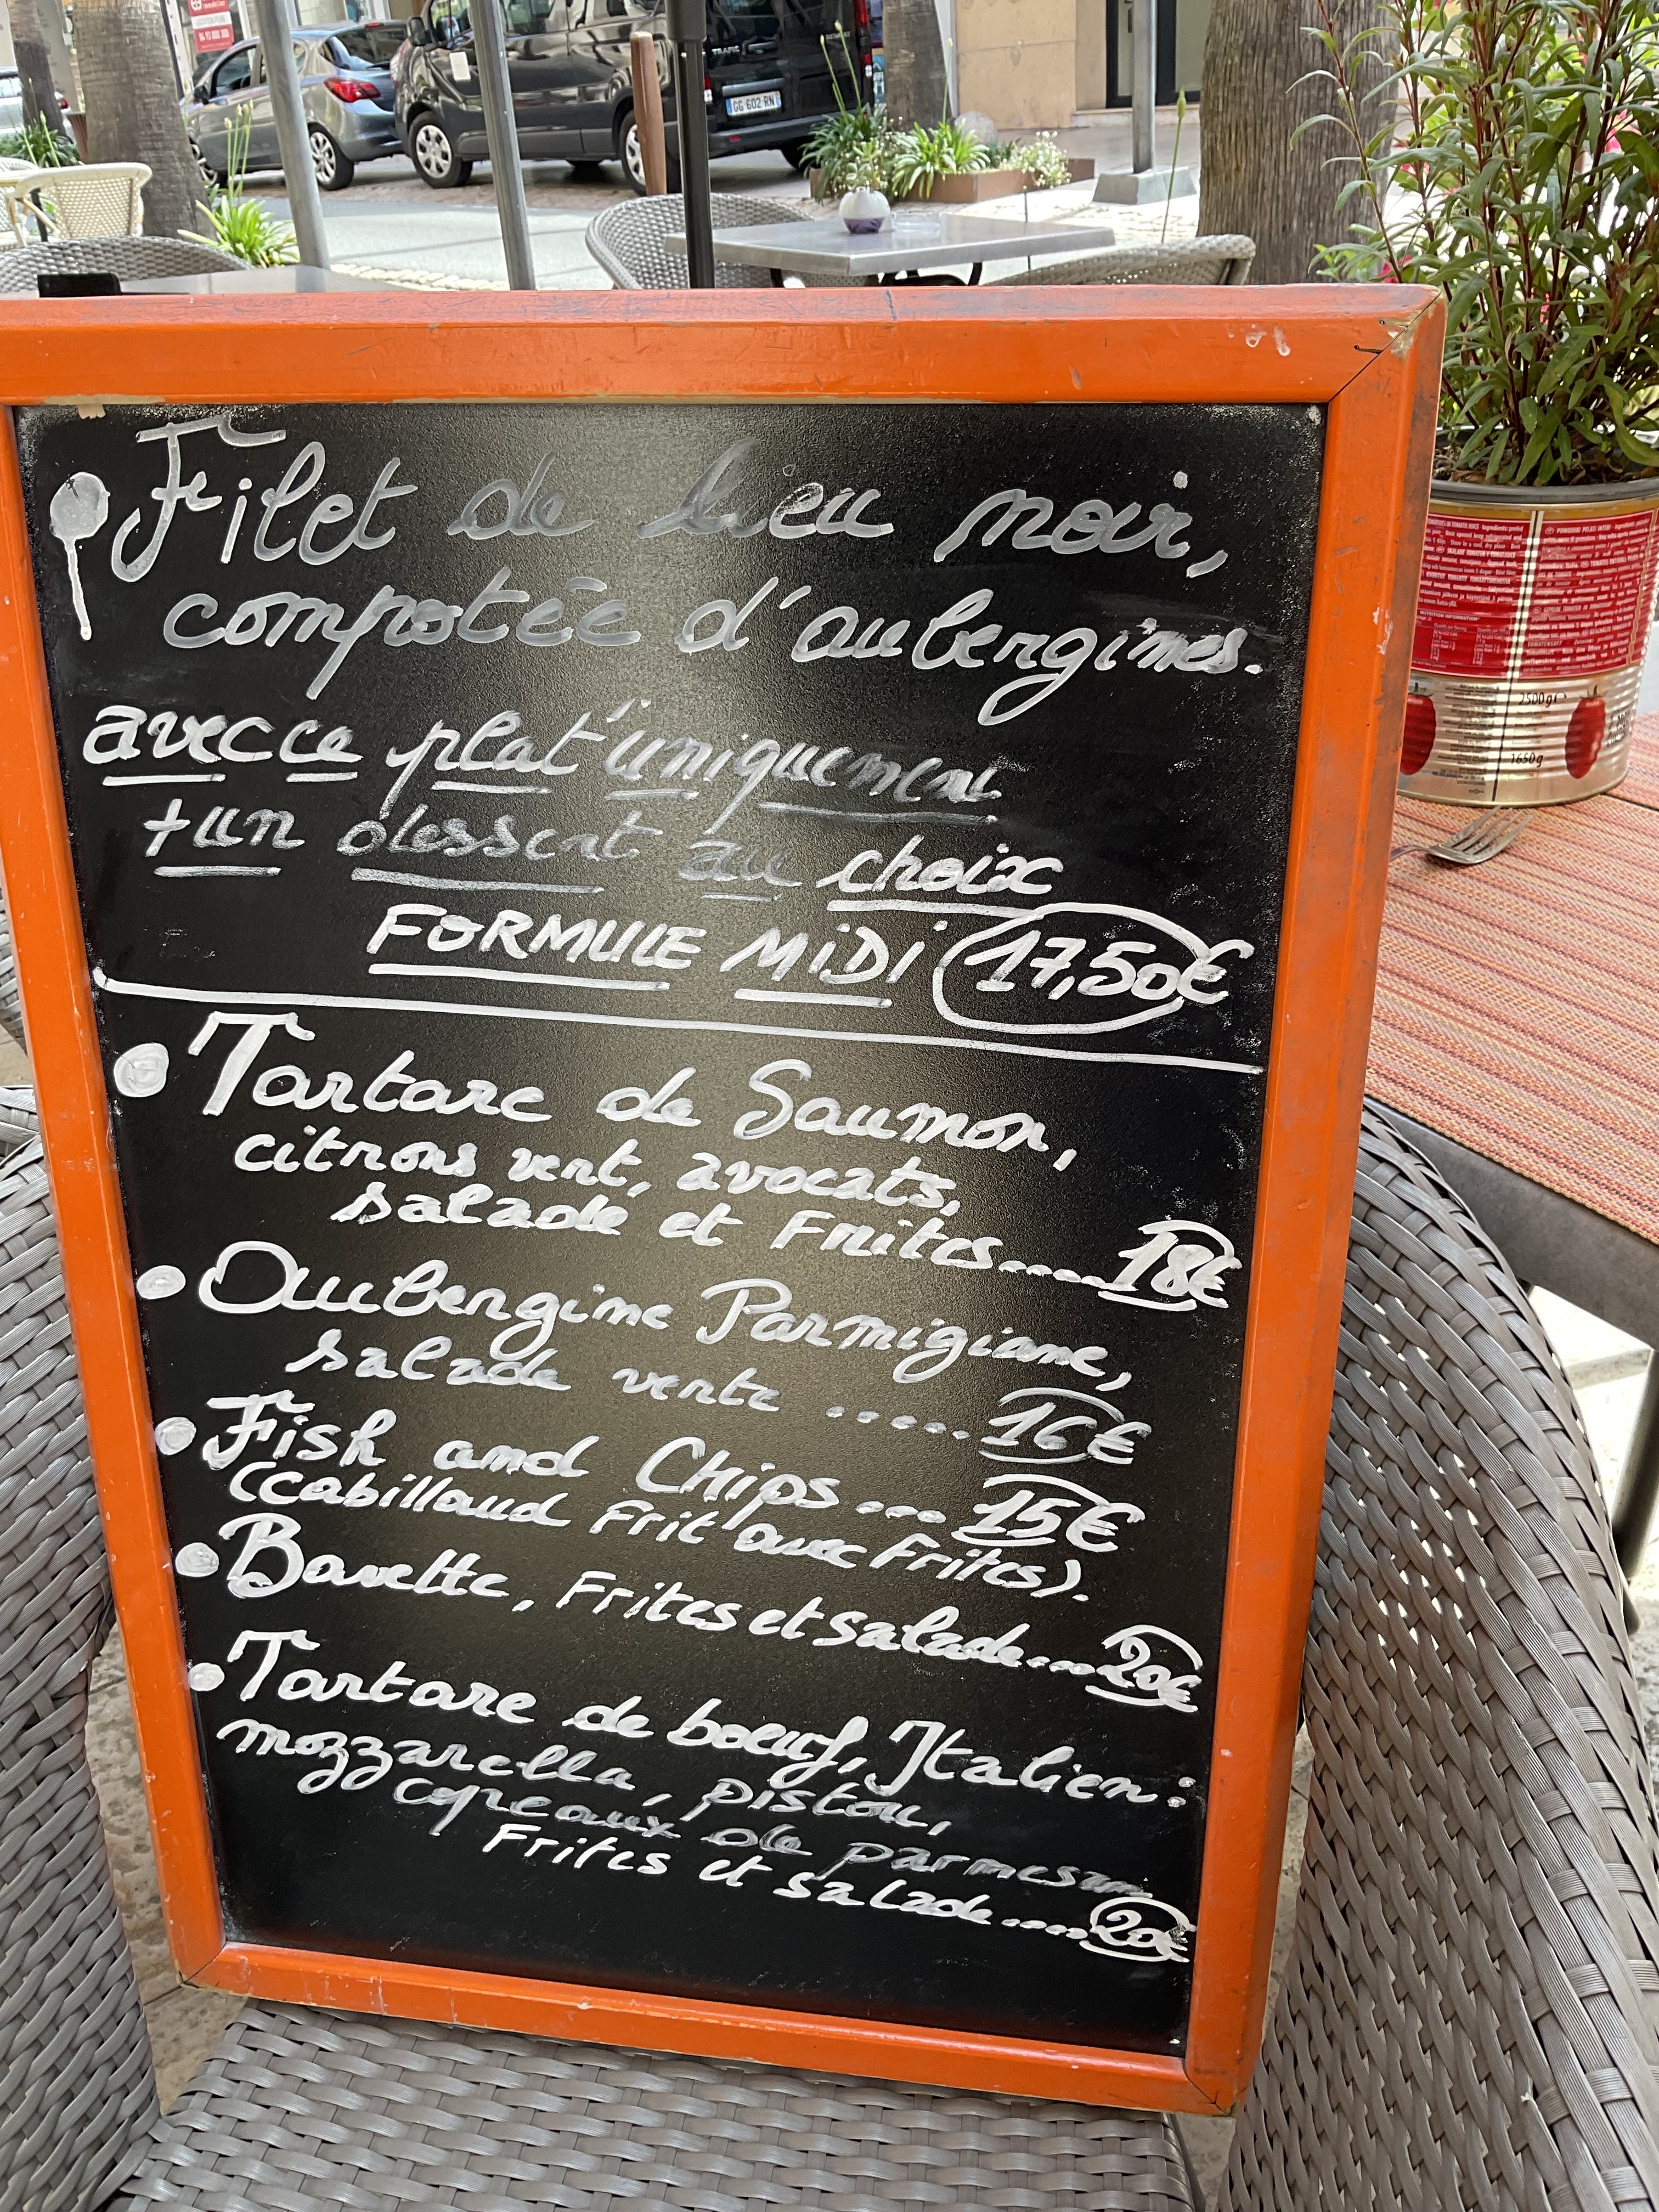 Filet de lieu noir,
compotée d'aubergines.
avec ce plat uniquement
+ un dessert au choix
FORMULE MiDi 17,50€
Tartare de Saumon,
citrons vert, avocats,
salade et Frites..... 18€
Aubergine Parmigiane,
salade verte ..... 16€
Fish and Chips ... 15€
(cabillaud Frit avec Frites).
Bavette, Frites et salade.... 20€
Tartare de boeuf, Italien:
mozzarella, pistou,
copeaux de parmesan
Frites et salade..... 20€
GG 602 RN
TRAFIC
2500 g
1650 g